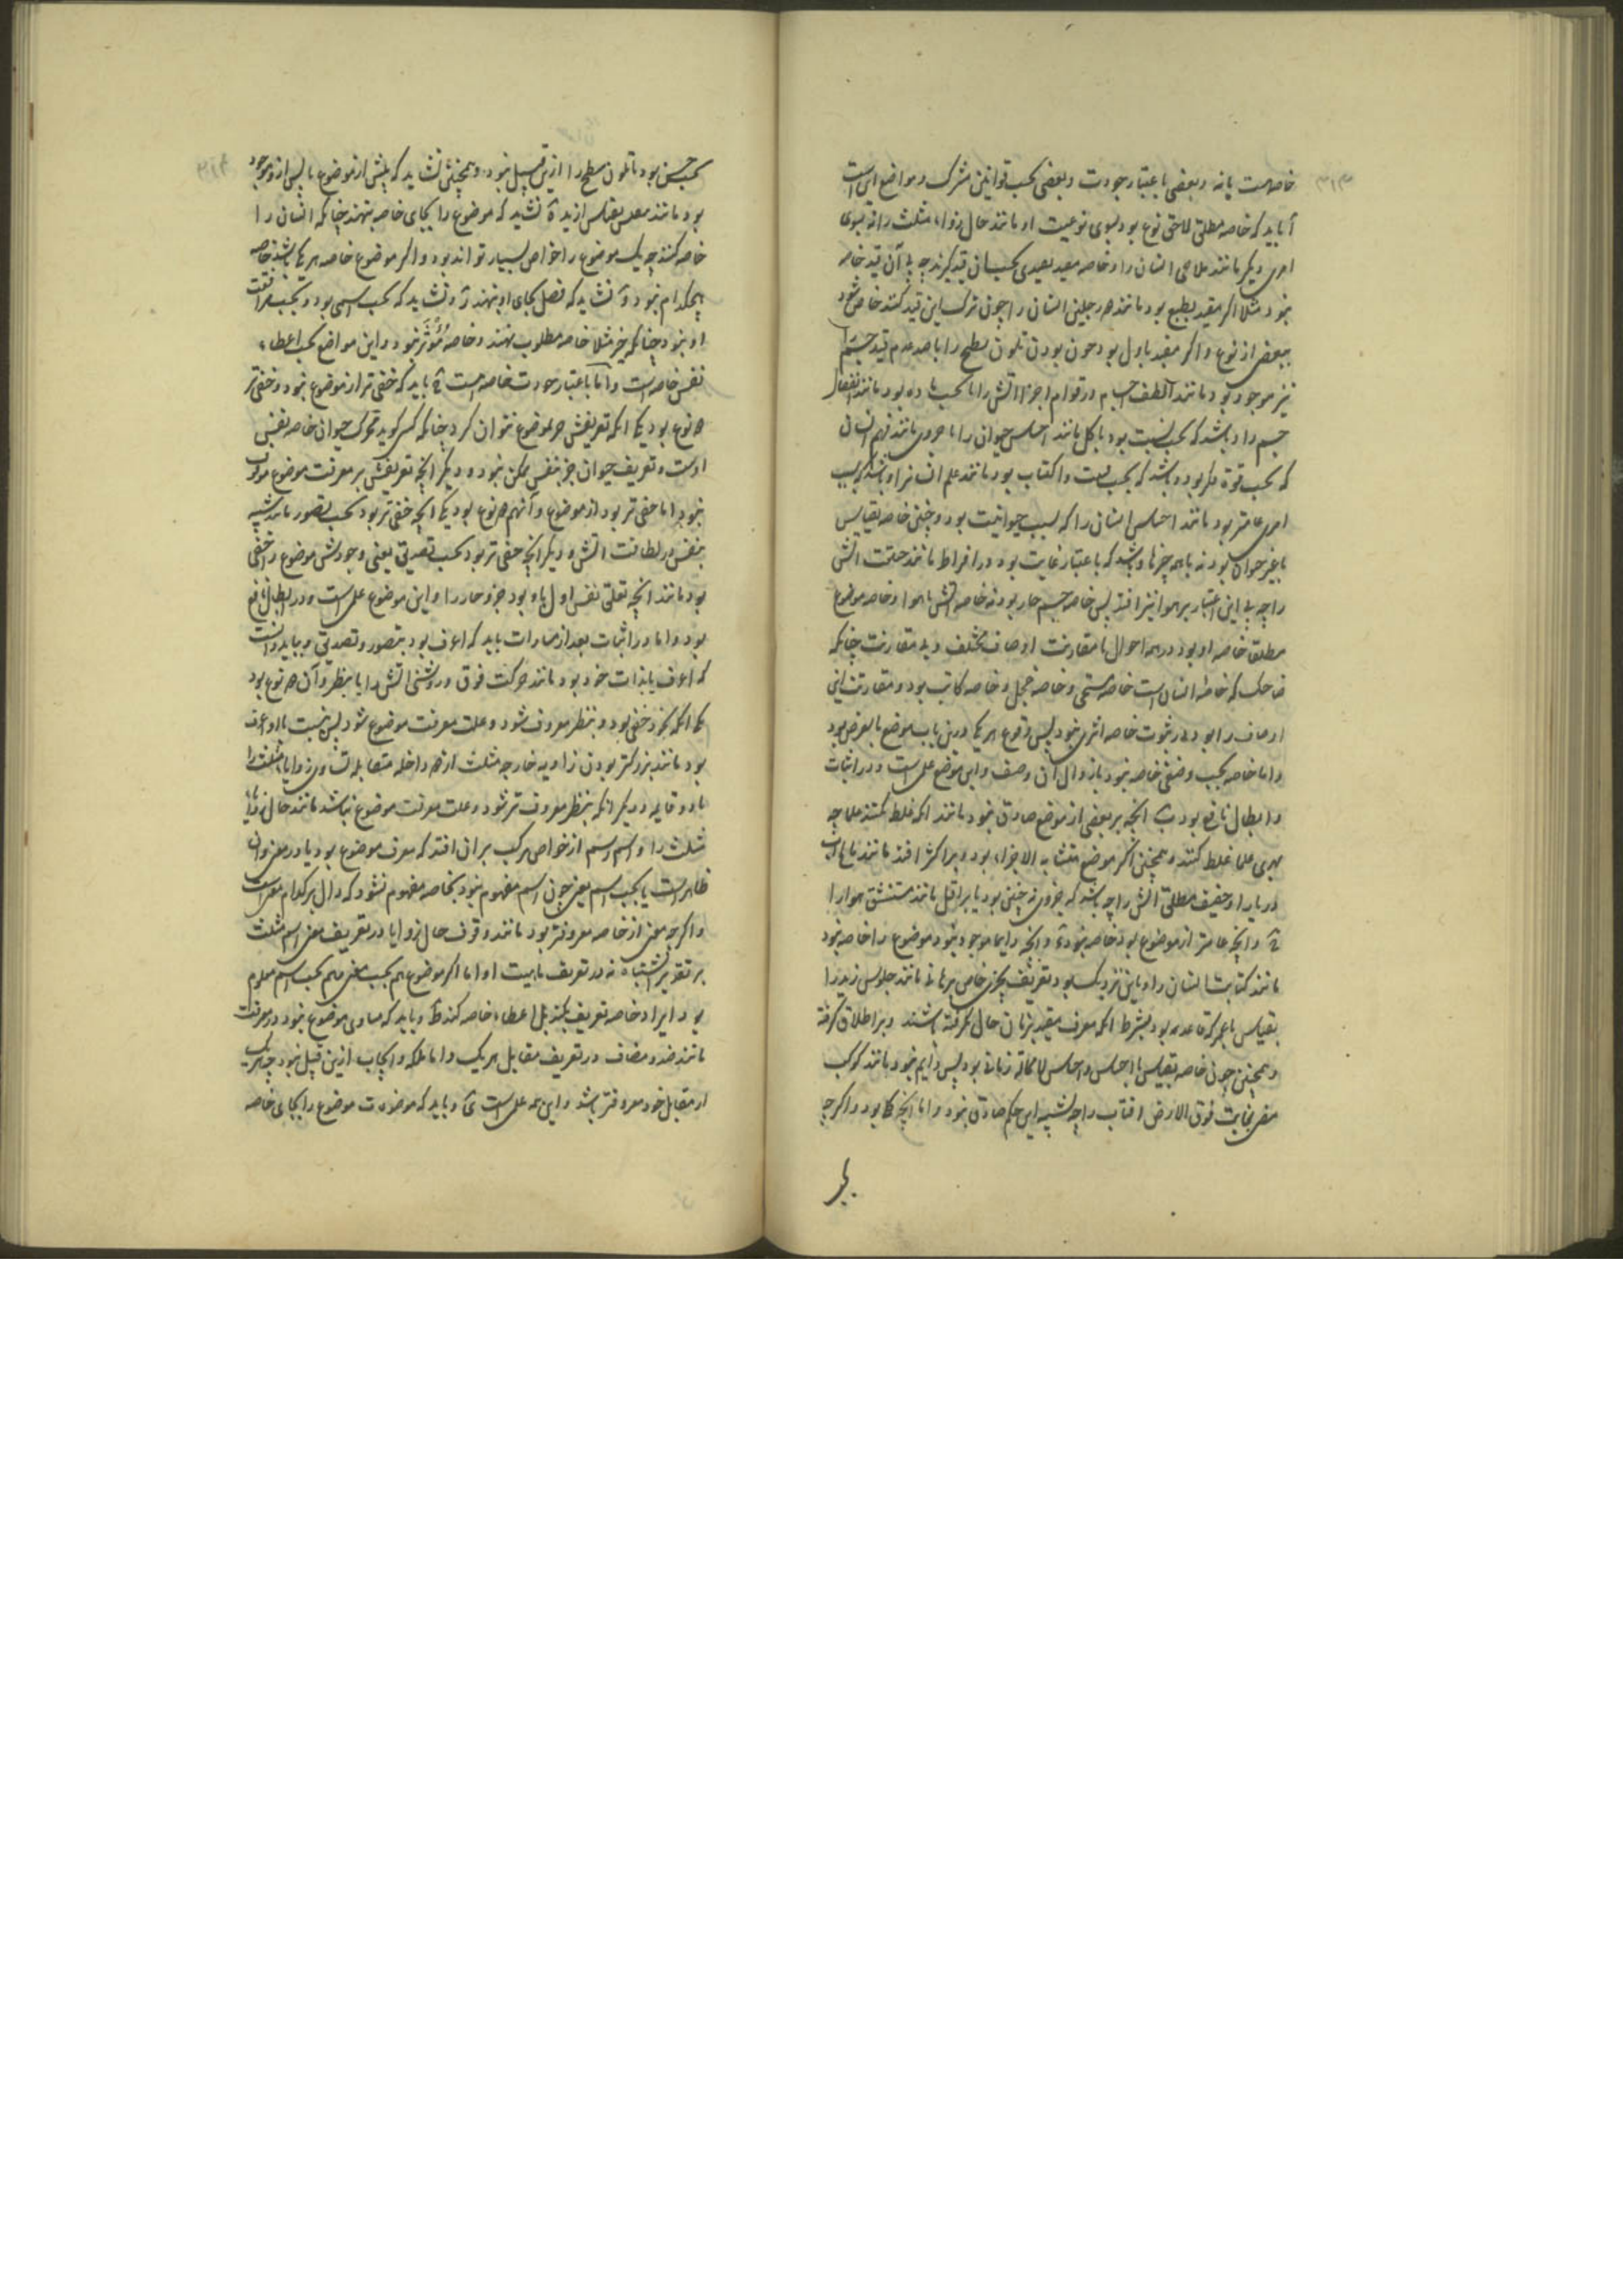 ۳۱۳
خاصه هست یا نه و بعضی باعتبار جودت و بعضی بحسب قوانین مشترک و مواضع این است
آ باید که خاصه مطلق لاحق نوع بود بسوی نوعیت او مانند حال زوایا مثلث را نه بسوی
امری دیگر مانند ملاحی انسان را و خاصه مقید بقیدی بحسب آن قید گیرند چه بی آن قید خاصه
نبود مثلا اگر مقید بطبع بود مانند دو رجلین انسان را چون ترک این قید کنند خاص شود
ببعضی از نوع و اگر مقید باول بود چون بودن تلون سطح را با عدم قید جسم
نیز موجود بود مانند الطف اجسام در قوام اجزا آتش را یا بحسب ماده بود مانند انفعال
جسم را و باشد که بحسب نسبت بود با کل مانند احساس حیوان را یا جزوی مانند فهم انسان
که بحسب قوة فکر بود و باشد که بحسب و اکتساب بود مانند علم انسان را و باشد که بسبب
امری عامتر بود مانند احساس انسان را که بسبب حیوانیت بود و چنین خاصه بقیاس
با غیر حیوان بود نه با همه چیزها و باشد که باعتبار غایت بود در افراط مانند خفت آتش
را چه بی این اعتبار بر هوا نیز افتد پس خاصه جسم حار بود نه خاصه آتش یا هوا و خاصه موضوع
مطلق خاصه او بود در همه احوال با مقارنت اوصاف مختلف و بی مقارنت چنانکه
ضاحک که خاصه انسان است خاصه مستحی و خاصه خجل و خاصه کاتب بود و مقارنت این
اوصاف را بود در ثبوت خاصه اثری نبود پس وقوع هر یک درین باب موضع بالعرض بود
و اما خاصه بحسب وصفی خاصه نبود با زوال آن وصف و این موضع علمی است و در اثبات
و ابطال نافع بود ب آنچه بر بعضی از موضع صادق نبود مانند آنکه غلط نکنند علما چه
بهری علما غلط کنند و همچنین اگر موضع متشابه الاجزاء بود و بر اکثر افتد مانند ماء
دریا را و خفیف مطلق آتش را چه باشد که جزوی نه چنین بود یا بر اقل مانند مستنشق هوا را
و آنچه عامتر از موضوع بود خاصه نبود و آنچه دایما موجود نبود موضوع را خاصه نبود
مانند کتابت انسان را و باین نزدیک بود تعریف بچیزی خاص بزمانی مانند جلوس زید را
بقیاس با غیر که قاعد بود بشرط آنکه معرف مقید بزمان حال نگرفته باشند و بر اطلاق گرفته
و همچنین چون خاصه بقیاس با احساس و احساس لامحاله زمانی بود پس دایم نبود مانند کوکب
مضی بغایت فوق الارض آفتاب را چه لشبه این حکم صادق نبود و اما آنچه بود و اگر چه
بحسب حس بود تا تلون سطح را ازین قبیل نبود و همچنین نشاید که پیش از موضوع یا پس از و موجود
بود مانند بقیاس نشاید که موضوع را بجای خاصه بنهند چنانکه انسان را
خاصه کنند چه یک موضوع را خواص بسیار تواند بود و اگر موضوع خاصه هر یک باشد خاصه
هیچکدام نبود و نشاید که فصل بجای او بنهند و نشاید که بحسب اسمی بود و بحسب مرافقت
او نبود چنانکه خیر مثلا خاصه مطلوب نهند و خاصه مُؤثَر نبود و این مواضع بحسب اعطاء
نفس خاصه است و اما باعتبار جودت خاصه است باید که خفی تر از موضوع نبود و خفی تر
دو نوع بود یکی آنکه تعریفش جز بموضوع نتوان کرد چنانکه کسی گوید تحرک حیوان خاصه نفس
اوست و تعریف حیوان جز بنفس ممکن نبود و دیگر آنچه تعریفش بر معرفت موضوع موقوف
نبود اما خفی تر بود از موضوع و آنهم دو نوع بود یکی آنچه خفی تر بود بحسب تصور مانند شبیه
بنفس در لطافت آتش و دیگر آنچه خفی تر بود بحسب تصدیق یعنی وجودش موضوع را خفی
بود مانند آنچه تعلق نفس اول باو بود جزو حار را و این موضوع علمی است و در ابطال نافع
بود و اما در اثبات بعد از مساوات باید که اعرف بود بتصور و تصدیق و بباید دانست
که اعرف یا بذات خود بود مانند حرکت فوق و روشنی آتش را یا بنظر و آن دو نوع بود
یکی آنکه خفی بود و بنظر معروف شود و علت معرفت موضوع شود پس بنسبت با او اعرف
بود مانند بزرگتر بودن زاویه خارجه مثلث از هر داخله متقابله تساوی زوایا مثلث را
با دو قایمه و دیگر آنکه بنظر معروف تر شود و علت معرفت موضوع نباشد مانند حال زوایا
مثلث را و اسم و رسم از خواص مرکب بر آن افتد که معرف موضوع بود یا در معنی و آن
ظاهر است یا بحسب اسم یعنی چون اسم مفهوم نبود بخاصه مفهوم نشود که دال بر کدام معنی است
و اگر چه معنی از خاصه معروفتر بود مانند وقوف حال زوایا در تعریف معنی اسم مثلث
بر تقدیر اشتباه نه در تعریف ماهیت او اما اگر موضوع هم بحسب معنی و هم بحسب اسم معلوم
بود ایراد خاصه تعریف نکند بل اعطاء خاصه کند و باید که مساوی موضوع نبود در معرفت
مانند ضد و مضاف در تعریف مقابل هر یک و اما ملکه و ایجاب ازین قبیل نبود چه هر یک
از مقابل خود معروفتر باشد و این همه علمی است و باید که موضوعات موضوع را بجای خاصه